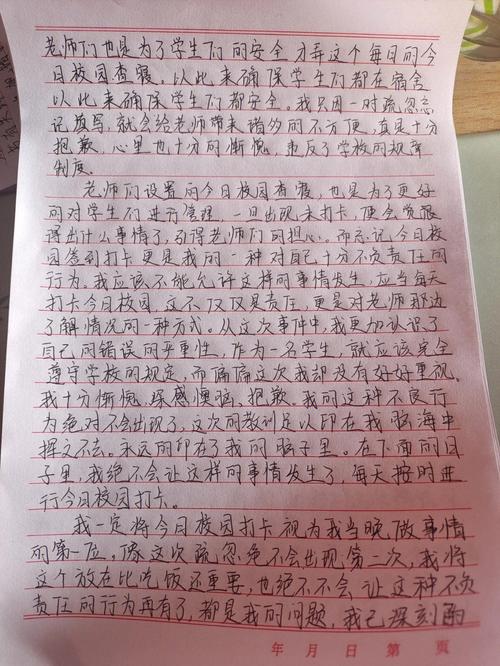 老师们也是为了学生们的安全才弄这个每日的今
日校园查寝，以此来确保学生们都在宿舍
以此来确保学生们都安全。我只因一时疏忽忘
记填写，就会给老师带来诸多的不方便，真是十分
抱歉，心里也十分的惭愧，违反了学校的规章
制度。
老师们设置的今日校园查寝，也是为了更好
的对学生们进行管理，一旦出现未打卡，便会觉
得出什么事情了，引得老师们的担心。而忘记今日校
园签到打卡更是我的一种对自己十分不负责任的
行为。我应该不能允许这样的事情发生，应当每天
打卡今日校园，这不仅仅是责任，更是对老师那边
了解情况的一种方式。从这次事件中，我更加认识了
自己的错误的严重性，作为一名学生，就应该完全
遵守学校的规定，而偏偏这次我却没有好好重视，
我十分惭愧，深感懊恼，抱歉，我的这种不良行
为绝对不会出现了，这次的教训足以印在我脑海中
挥之不去。永远的印在了我的脑子里。在下面的日
子里，我绝不会让这样的事情发生了，每天按时进
行今日校园打卡。
我一定将今日校园打卡视为我当晚做事情
的第一位，像这次疏忽绝不会出现第二次，我将
这个放在比吃饭还重要，也绝不不会让这种不负
责任的行为再有了，都是我的问题，我已深刻的
年 月 日 第 页